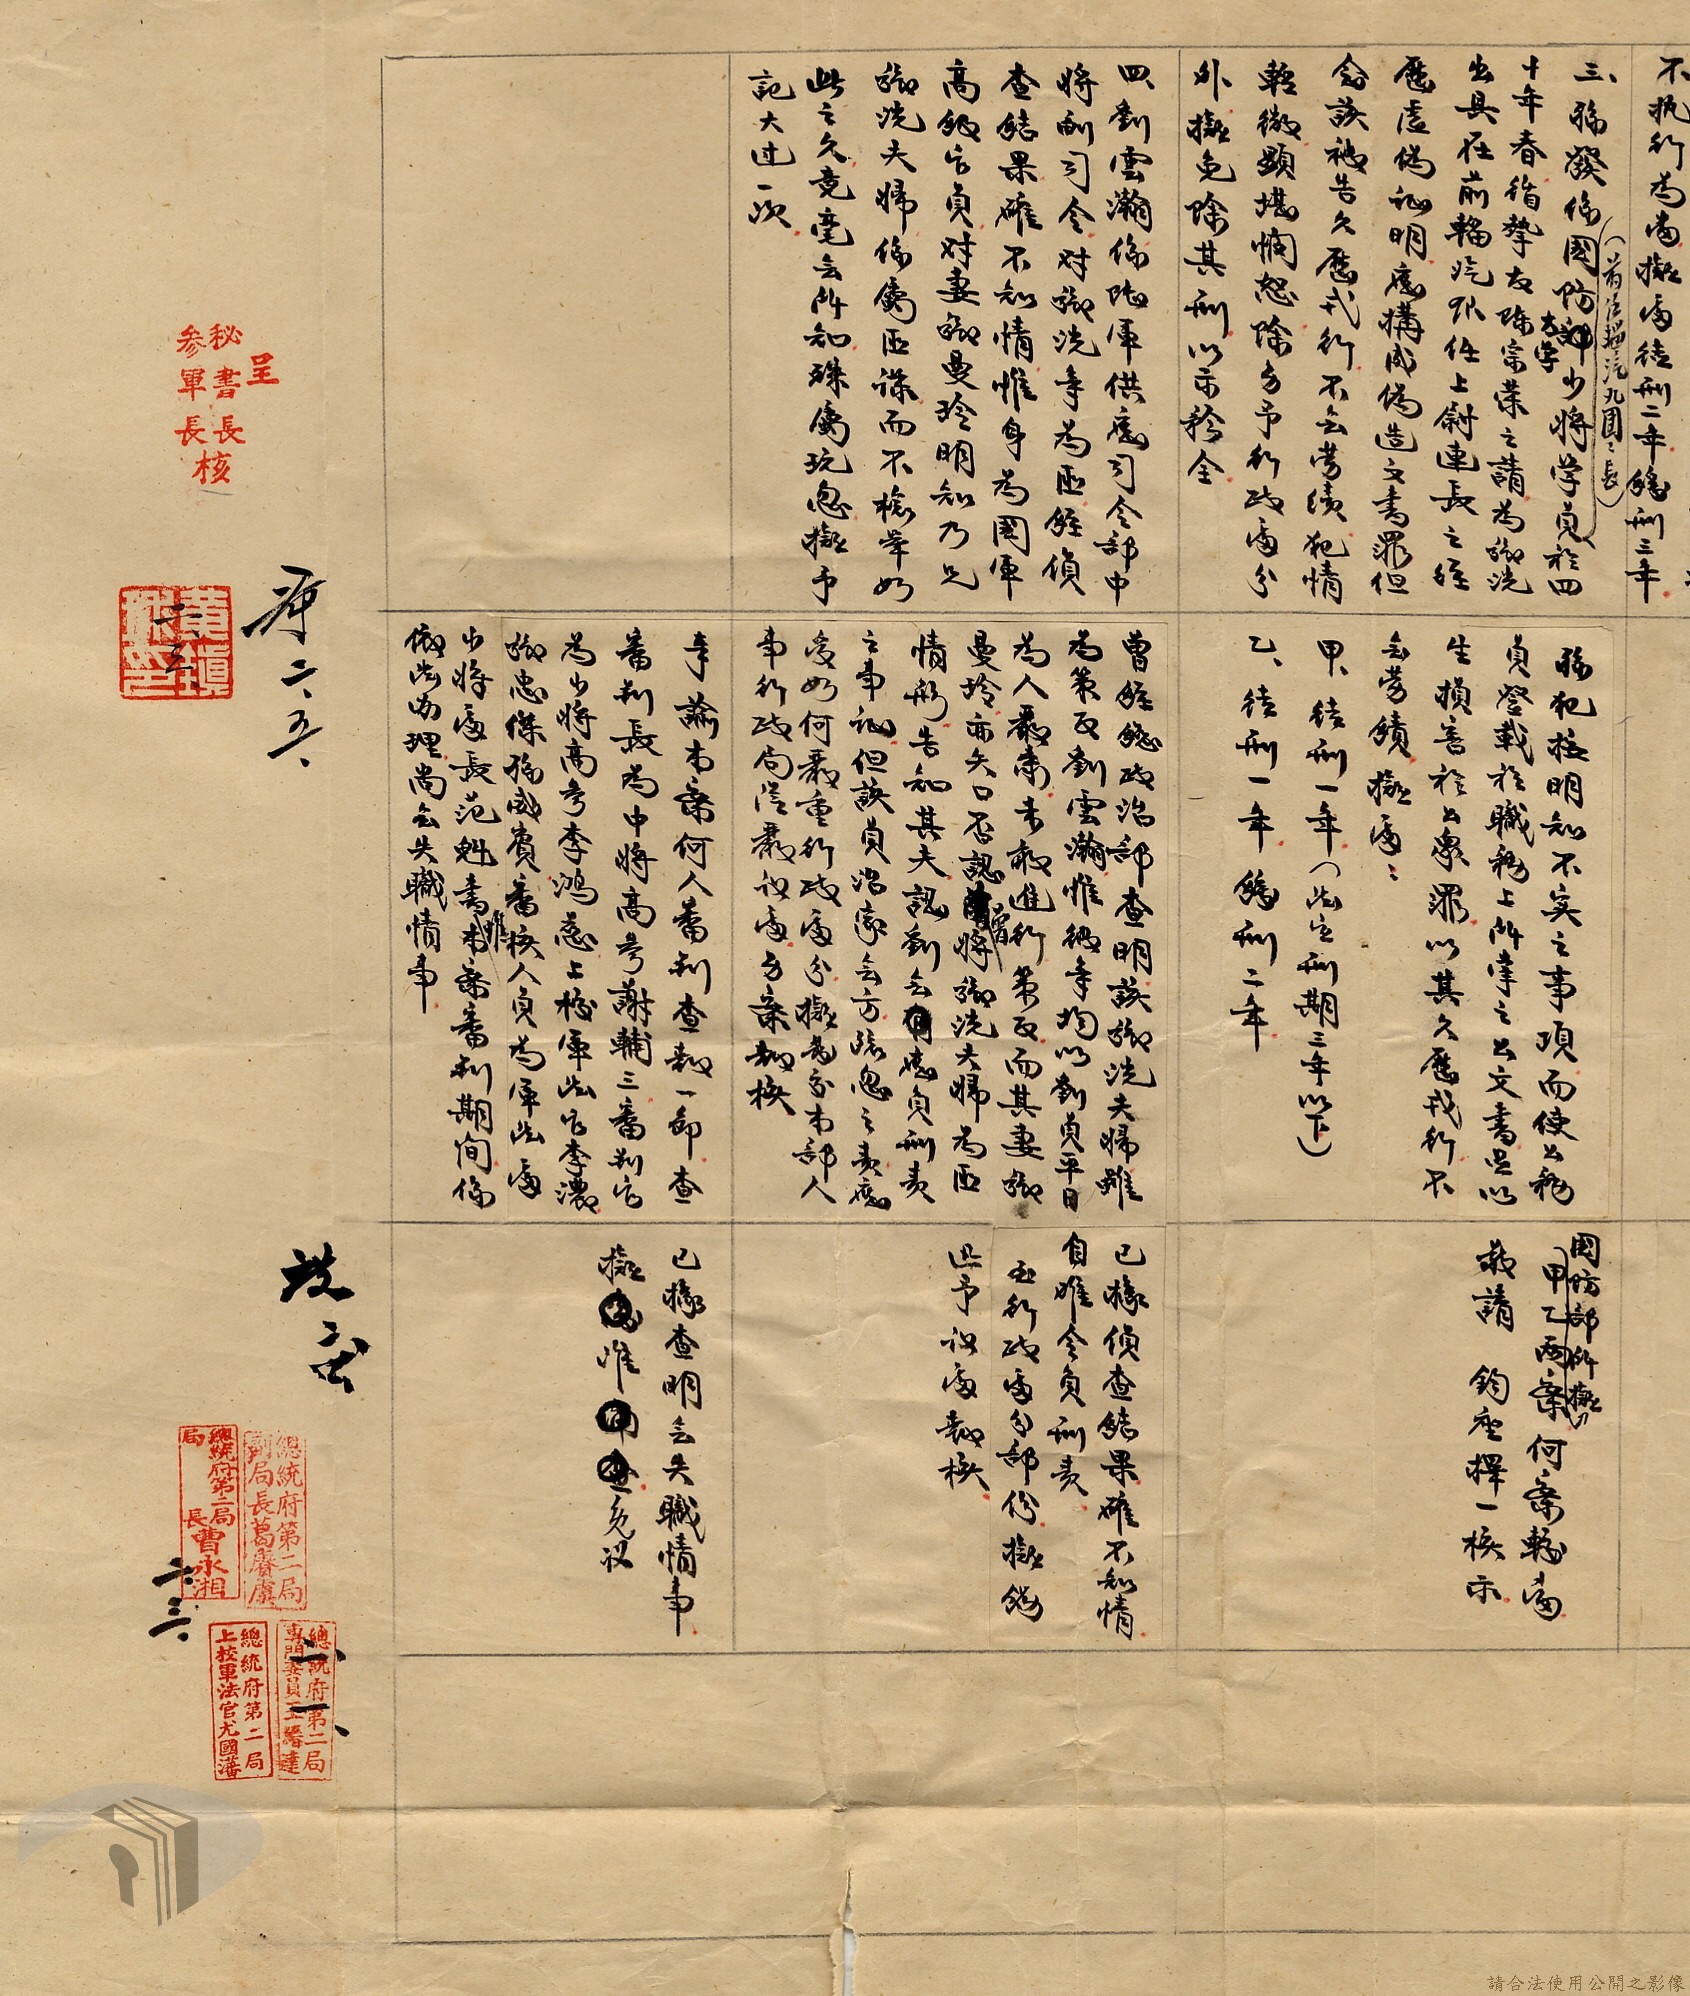 不執行為當擬處徒刑二年緩刑三年
三、
十年春循摯友陳宗榮之請為鄒洗
出具在前輜汽
任上尉連長之經
歷虛偽証明應構成偽造文書罪但
念該被告久歷戎行不無勞績犯情
輕微顯堪憫恕除另予行政處分
外擬免除其刑以示矜全
四、劉雲瀚係陸軍供應司令部中
將副司令對鄒洗等為匪經偵
查結果確不知情惟身為國軍
高級官員對妻鄒曼玲明知乃兄
鄒洗夫婦係屬匪諜而不檢舉如
此之久竟毫無所知殊屬玩忽擬予
記大过一次
犯換明知不实之事項而使公務
員登載於職務上所掌之公文書足以
生損害於公眾罪以其久歷戎行不
無勞績擬處：
甲、徒刑一年（法定刑期三年以下）
乙、徒刑一年緩刑二年
曹經總政治部查明該鄒洗夫婦雖
為策反劉雲瀚惟彼等均以劉員平日
為人嚴肅未敢進行策反而其妻鄒
曼玲亦矢口否認曾將鄒洗夫婦為匪
情形告知其夫認劉無應負刑責
之事証但該員治家無方疏忽之責應
受如何嚴重行政處分擬飭本部人
事行政局從嚴議處另案報核
奉諭本案何人審判查報一節查
審判長為中將高參謝輔三審判官
為少將高參李鴻慈上校軍法官李濃
鄒忠傑
審核人員為軍法處
少將處長范魁書惟本案審判期間係
依法办理尚無失職情事
國防部所擬
甲乙兩案何案較當
敬請 鈞座擇一核示
已據偵查結果確不知情
自难令負刑責
至行政處分部份擬飭
迅予議處報核
已據查明無失職情事
擬准免议
呈
秘書長
參軍長核
二、五、
二、三、
總統府第二局
副局長葛賡虞
總統府第二局
局長曹永湘
二、三、
總統府第二局
專門委員王縉達
總統府第二局
上校軍法官尤國藩
二、一、
請合法使用公開之影像